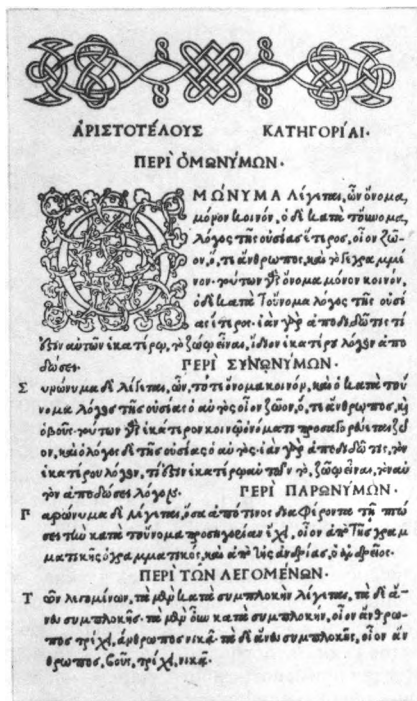 ἈΡΙΣΤΟΤΈΛΟΥΣ ΚΑΤΗΓΟΡΊΑΙ·
ΠΕΡῚ ὉΜΩΝΎΜΩΝ·
ΟΜΏΝΥΜΑ Λέγεται, ὧν ὄνομα,
μόνον κοινόν, ὁ δὲ κατὰ τοὔνομα,
λόγος τῆς οὐσίας ἕτερος, οἷον ζῶ-
ον, ὅ, τι ἄνθρωπος, καὶ τὸ γεγραμμέ
νον· τούτων γὰρ ὄνομα μόνον κοινόν,
ὁ δὲ κατὰ τοὔνομα λόγος τῆς οὐσί
ας ἕτερος· ἐὰν γὰρ ἀποδιδῶ τις τί
ἐστιν αὐτῶν ἑκατέρῳ, τὸ ζώῳ εἶναι, ἴδιον ἑκατέρου λόγον ἀπο
δώσει. ΠΕΡῚ ΣΥΝΩΝΎΜΩΝ·
Συνώνυμα δὲ λέγεται, ὧν, τό τε ὄνομα κοινόν, καὶ ὁ κατὰ τοὔ
νομα λόγος τῆς οὐσίας ὁ αὐτός· οἷον ζῶον, ὅ, τι ἄνθρωπος, καὶ
ὁ βοῦς· τούτων γὰρ ἑκάτερον κοινῷ ὀνόματι προσαγορεύεται ζῶ
ον, καὶ ὁ λόγος δὲ τῆς οὐσίας ὁ αὐτός· ἐὰν γὰρ ἀποδιδῶ τις, τὸν
ἑκατέρου λόγον, τί ἐστιν ἑκατέρῳ αὐτῶν τὸ, ζώῳ εἶναι, τὸν αὐ
τὸν ἀποδώσει λόγον. ΠΕΡῚ ΠΑΡΩΝΎΜΩΝ·
Παρώνυμα δὲ λέγεται, ὅσα ἀπό τινος διαφέροντα τῇ πτώ
σει τὴν κατὰ τοὔνομα προσηγορίαν ἔχει, οἷον ἀπὸ τῆς γραμ
ματικῆς ὁ γραμματικός, καὶ ἀπὸ τῆς ἀνδρίας, ὁ ἀνδρεῖος·
ΠΕΡῚ ΤΩΝ ΛΕΓΟΜΈΝΩΝ·
Τῶν λεγομένων, τὰ μὲν κατὰ συμπλοκὴν λέγεται, τὰ δὲ ἄ-
νευ συμπλοκῆς· τὰ μὲν οὖν κατὰ συμπλοκήν, οἷον ἄνθρω-
πος τρέχει, ἄνθρωπος νικᾷ· τὰ δὲ ἄνευ συμπλοκῆς, οἷον ἄν
θρωπος, βοῦς, τρέχει, νικᾷ.